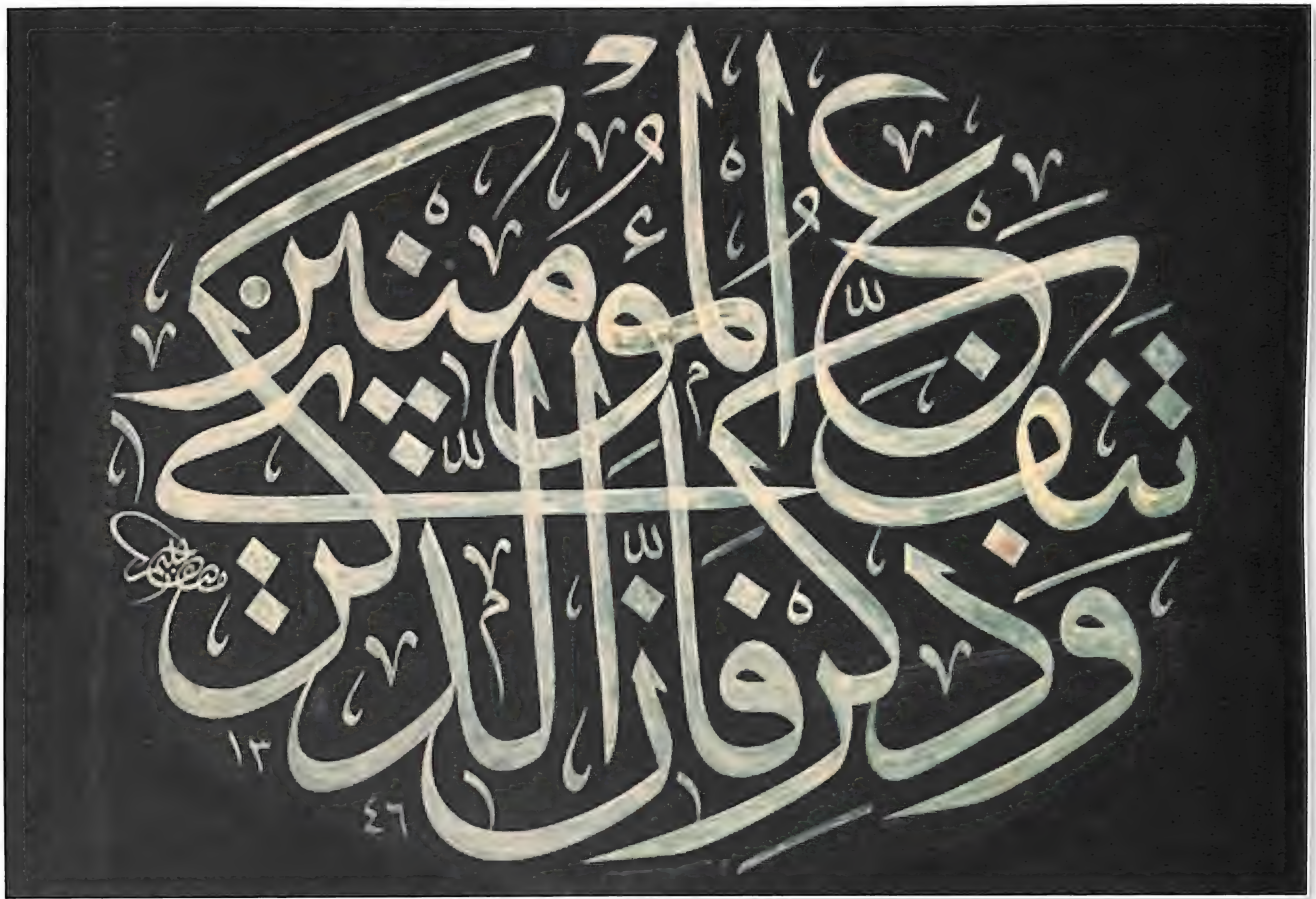 وَذَكِّرْ فَإِنَّ الذِّكْرَىٰ
تَنفَعُ الْمُؤْمِنِينَ
١٣٤٦